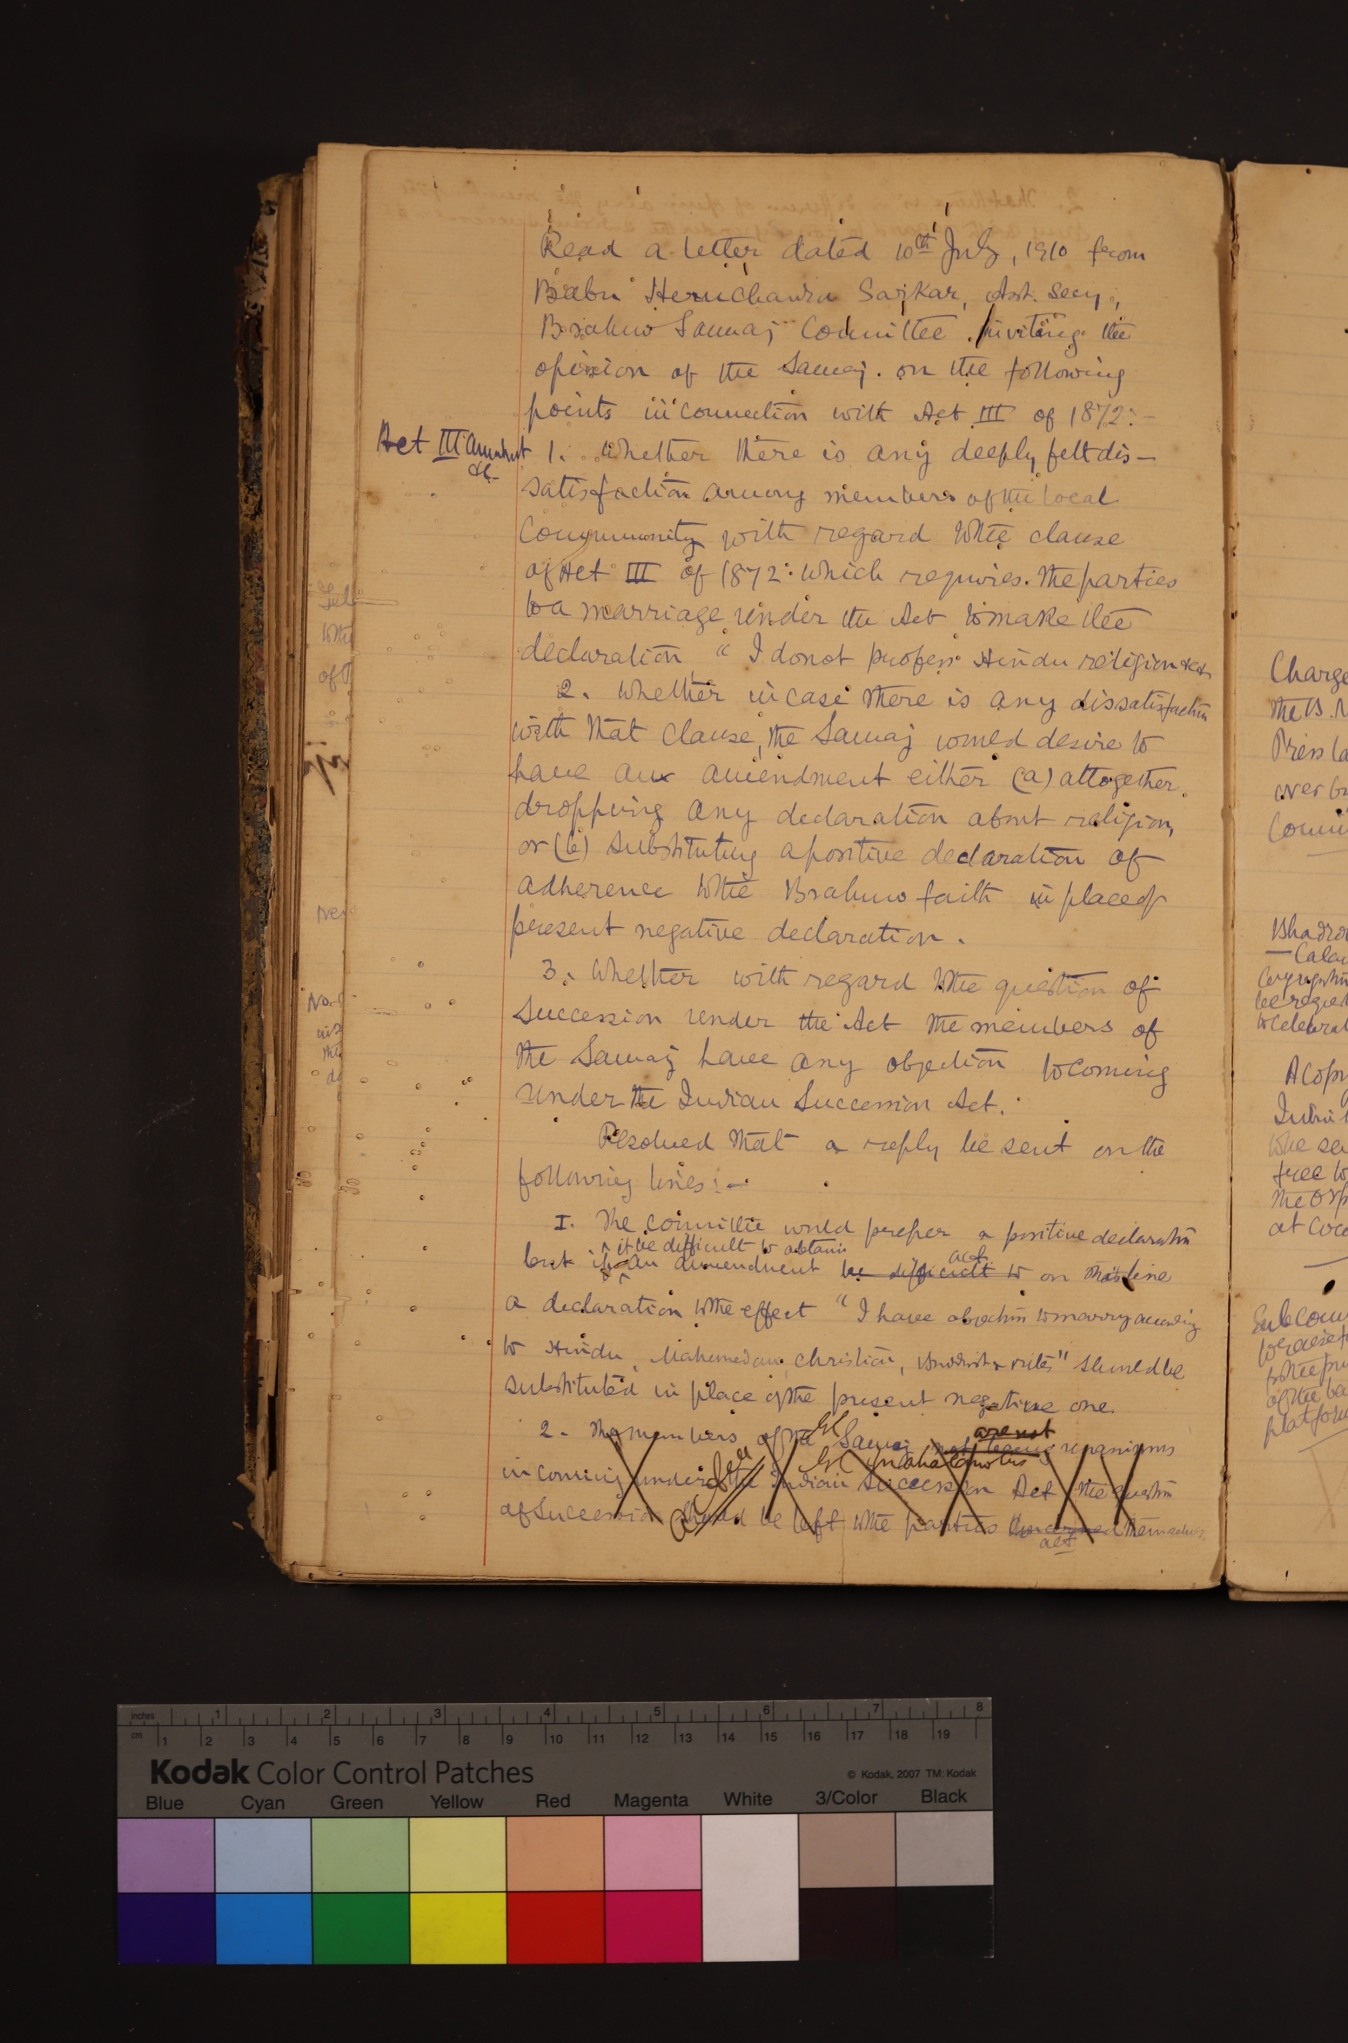 Read a letter dated 10th July, 1910 from
Babu Hem Chandra Sarkar, Asst. Secy.,
Brahmo Samaj Committee inviting the
opinion of the Samaj. on the following
points in connection with Act III of 1872:-
Act III Amendmt
&c
1. Whether there is any deeply felt dis-
satisfaction among members of the local
Community with regard to the clause
of Act III of 1872 which requires the parties
to a marriage under the Act to make the
declaration "I do not profess Hindu religion &c
2. Whether in case there is any dissatisfaction
with that Clause, the Samaj would desire to
have an amendment either (a) altogether
dropping any declaration about religion,
or (b) substituting a positive declaration of
adherence to the Brahmo faith in place of
present negative declaration.
3. Whether with regard to the question of
Succession under the Act the members of
the Samaj have any objection to coming
under the Indian Succession Act.
Resolved that a reply be sent on the
following lines:-
I. The committee would prefer a positive declaration
it be difficult to obtain
but if an amendment be difficult to on this line
a declaration to the effect "I have objection to marry according
to Hindu, Mahomedan, Christian, Buddhist rites" should be
substituted in place of the present negative one.
2. The members of the Samaj are not unanimous
in coming under the Indian Succession Act the question
of Succession should be left to the parties concerned themselves.
Charge
the B. M
Press
over
Comm
Bhadro
be reque
to celebrat
A copy
to be se
free to
at Coco
Sub Com
of the
platform
Kodak Color Control Patches
© Kodak, 2007 TM: Kodak
inches 1 2 3 4 5 6 7 8
cm 1 2 3 4 5 6 7 8 9 10 11 12 13 14 15 16 17 18 19
Blue Cyan Green Yellow Red Magenta White 3/Color Black